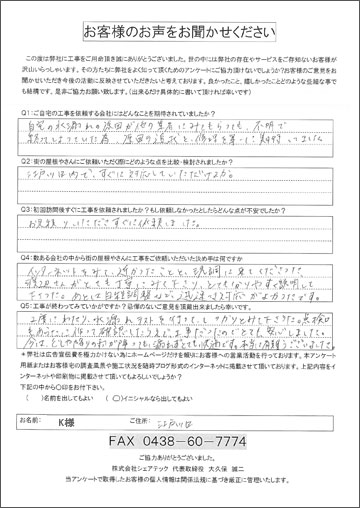 お客様のお声をお聞かせください
この度は弊社に工事をご用命頂き誠にありがとうございました。世の中には弊社の存在やサービスをご存知ないお客様が
沢山いらっしゃいます。その方たちに弊社をよく知って頂くためのアンケートにご協力頂けないでしょうか？お客様のご意見をお
聞かせいただき今後の活動に反映させていただきたいと考えております。良かったこと、嬉しかったことどのような些細な事で
も結構です。是非ご協力お願い致します。（出来るだけ具体的に書いて頂ければ幸いです）
Q1：ご自宅の工事を依頼する会社にはどんなことを期待されていましたか？
自宅の水漏れの原因が他の業者にみてもらっても、不明で
原因の追求と、修理を
Q2：街の屋根やさんにご依頼いただく際にどのような点を比較・検討されましたか？
江戸川区内で、すぐに対応していただけるか。
Q3：初回訪問後すぐに工事を依頼されましたか？もし依頼しなかったとしたらどんな点が不安でしたか？
お見積りいただき すぐに依頼しました。
Q4：数ある会社の中から街の屋根やさんにご依頼いただいた決め手は何ですか
インターネットをみて、近かったことと、 に来てくださった
渡辺さんがとても丁寧に みて下さり、とてもわかりやすく説明して
下さった。あとは 迅速な対応がよかったです。
Q5：工事が終わってみていかがですか？忌憚のないご意見を頂戴出来ましたら幸いです。
工事にわたり、水漏れテストを 行って、しっかりとみて下さった。点検口
をあらたに作って確認してもらえ 工事だったのでとても、安心しました。
今は、どしゃ降りの雨が降っても 漏れずとても快適です。本当に有難うございました。
＊弊社は広告宣伝費を極力かけない為にホームページだけを頼りにお客様への営業活動を行っております。本アンケート
用紙またはお客様宅の調査風景や施工状況を随時ブログ形式のインターネットに掲載させて頂いております。上記内容をイ
ンターネットや印刷物に掲載させて頂いてもよろしいでしょうか？
下記の中から〇印をお付け下さい。
（　）名前を出してもよい　（〇）イニシャルなら出してもよい　（　）
お名前： K様 ご住所： 江戸川区
FAX 0438-60-7774
ご協力ありがとうございました。
株式会社シェアテック 代表取締役 大久保 誠二
当アンケートで取得したお客様の個人情報は関係法規に基づき厳正に管理いたします。